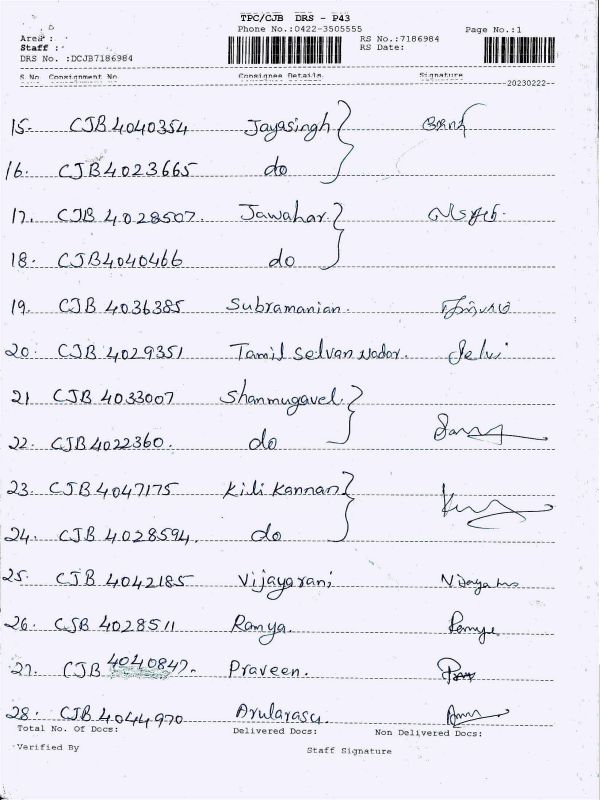 TPC/CJB DRS - P43
Phone No.:0422-3505555
Area :
Staff :
DRS No. :DCJB7186984
RS No.:7186984
RS Date:
Page No.:1
S.No Consignment No Consignee Details Signature
20230222
15. CJB4040354 Jayasingh
16. CJB4023665 do
17. CJB 4028507. Jawahar.
18. CJB4040466 do
19. CJB 4036385 Subramanian.
20. CJB 4029351 Tamil Selvan Nador. Selvi
21 CJB 4033007 Shanmugavel.
22. CJB4022360. do
23. CJB4047175 Kili Kannan
24. CJB 4028594. do
25. CJB 4042185 Vijayarani
26. CJB 4028511 Ramya. Ramya
27. CJB 4040847. Praveen.
28. CJB 4044970 Arularasu.
Total No. Of Docs: Delivered Docs: Non Delivered Docs:
Verified By Staff Signature